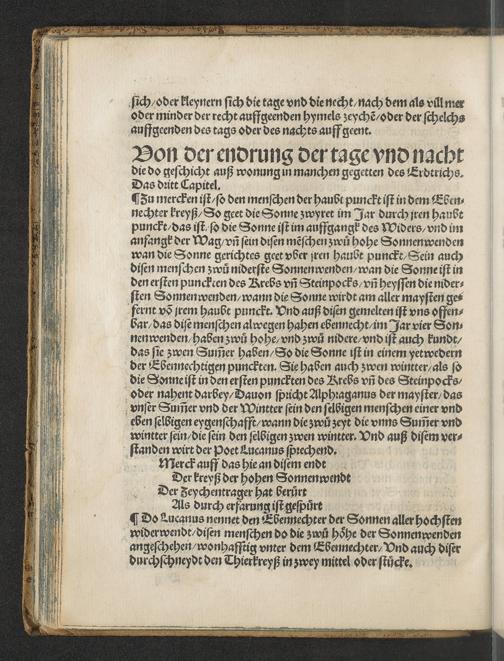 sich/oder kleynern sich die tage vnd die necht/nach dem als vill mer
oder minder der recht auffgeenden hymels zeychẽ/oder der schelchs
auffgeenden des tags oder des nachts auff geent.
Von der endrung der tage vnd nacht
die do geschicht auß wonung in manchen gegetten des Erdtrichs.
Das dritt Capitel.
¶Zu mercken ist/so den menschen der haubt punckt ist in dem Eben-
nechter kreyß/So geet die Sonne zwyret im Jar durch jren haubt
punckt/das ist/so die Sonne ist im auffgangk des Widers/vnd im
anfangk der Wag/vñ sein disen mẽschen zwů hohe Sonnenwenden
wan die Sonne gerichtes geet vber jren haubt punckt/Sein auch
disen menschen zwů niderste Sonnenwenden/wan die Sonne ist in
den ersten puncten des Krebs vñ Steinpocks/vñ heyssen die nider-
sten Sonnenwenden/wann die Sonne wirdt am aller maysten ge-
fernt võ jrem haubt punckt. Vnd auß disen gemelten ist vns offen-
bar/das dise menschen alwegen hahen ebennecht/im Jar vier Son-
nenwenden/haben zwů hohe/vnd zwů nidere/vnd ist auch kundt/
das sie zwen Sum̃er haben/So die Sonne ist in einem yetwedern
der Ebennechtigen puncten. Sie haben auch zwen wintter/als so
die Sonne ist in den ersten puncten des Krebs vñ des Steinpocks/
oder nahent darbey/Dauon spricht Alphraganus der mayster/das
vnser Sum̃er vnd der Wintter sein den selbigen menschen einer vnd
eben selbigen eygenschafft/wann die zwů zeyt die vnns Sum̃er vnd
wintter sein/die sein den selbigen zwen wintter. Vnd auß disem ver-
standen wirt der Poet Lucanus sprechend.
Merck auff das hie an disem endt
Der kreyß der hohen Sonnenwendt
Der Zeychentrager hat berürt
Als durch erfarung ist gespürt
¶ Do Lucanus nennet den Ebennechter der Sonnen aller hochsten
widerwendt/disen menschen do die zwů hőhe der Sonnenwenden
angeschehen/wonhafftig vnter dem Ebennechter/Vnd auch diser
durchschneydt den Thierkreyß in zwey mittel oder stücke.